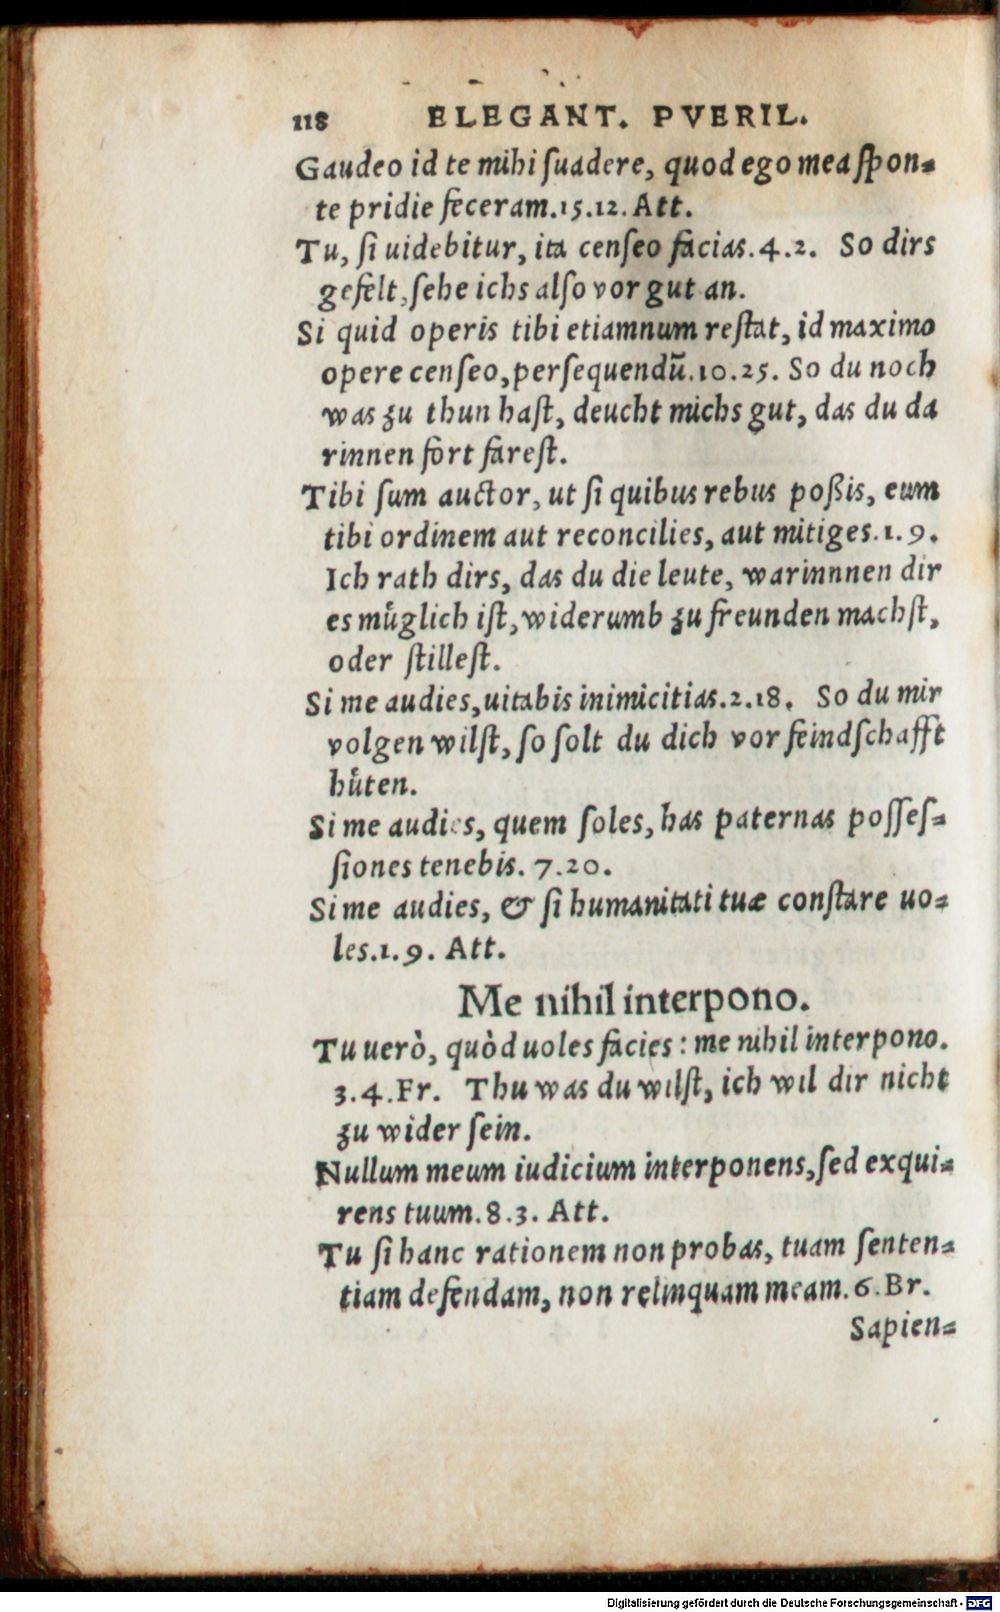 118 ELEGANT. PVERIL.
Gaudeo id te mihi ſuadere, quod ego mea ſpon⸗
te pridie feceram.15.12. Att.
Tu, ſi uidebitur, ita cenſeo facias.4.2. So dirs
gefelt, ſehe ichs alſo vor gut an.
Si quid operis tibi etiamnum reſtat, id maximo
opere cenſeo, perſequendū.10.25. So du noch
was zu thun haſt, deucht michs gut, das du da
rinnen fort fareſt.
Tibi ſum auctor, ut ſi quibus rebus poßis, eum
tibi ordinem aut reconcilies, aut mitiges.1.9.
Ich rath dirs, das du die leute, warinnnen dir
es muͤglich iſt, widerumb zu freunden machſt,
oder ſtilleſt.
Si me audies, uitabis inimicitias.2.18. So du mir
volgen wilſt, ſo ſolt du dich vor feindſchafft
huͤten.
Si me audies, quem ſoles, has paternas poſſeſ⸗
ſiones tenebis. 7.20.
Si me audies, & ſi humanitati tuæ conſtare uo⸗
les.1.9. Att.
Me nihil interpono.
Tu uerò, quòd uoles facies: me nihil interpono.
3.4.Fr. Thu was du wilſt, ich wil dir nicht
zu wider ſein.
Nullum meum iudicium interponens, ſed exqui⸗
rens tuum.8.3. Att.
Tu ſi hanc rationem non probas, tuam ſenten⸗
tiam defendam, non relinquam meam.6.Br.
Sapien⸗
Digitalisierung gefördert durch die Deutsche Forschungsgemeinschaft - DFG